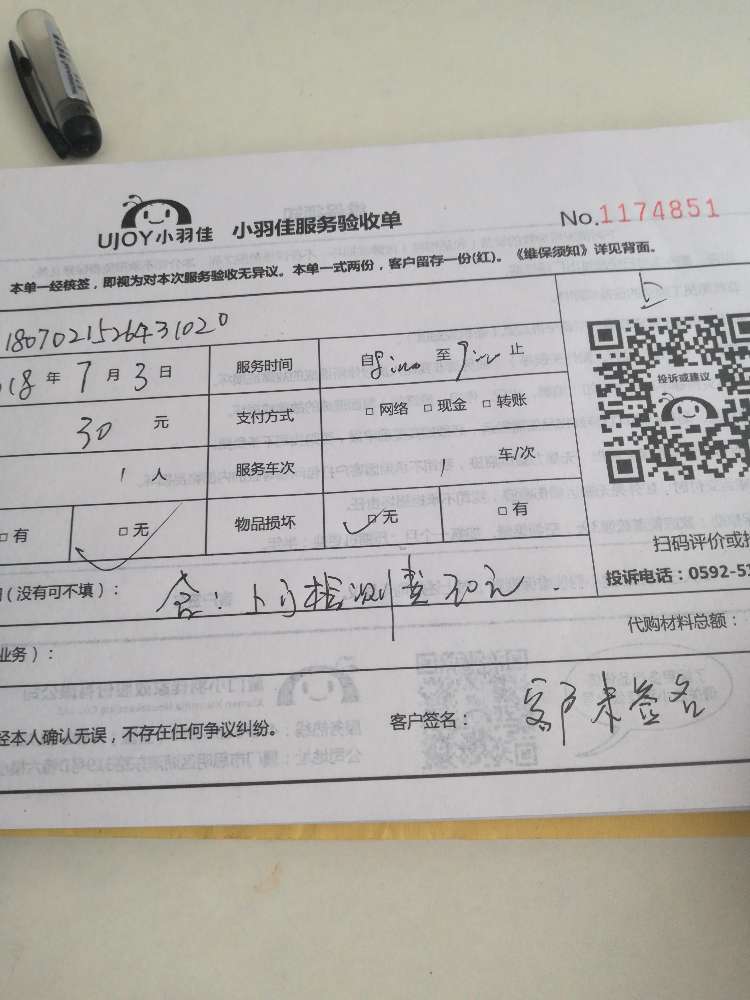 UJOY小羽佳 小羽佳服务验收单 No.1174851
本单一经核签，即视为对本次服务验收无异议。本单一式两份，客户留存一份(红)。《维保须知》详见背面。
1807021526431020
18 年 7 月 3 日 服务时间 自 8:00 至 9:00 止
30 元 支付方式 □ 网络 □ 现金 □ 转账
投诉或建议
1 人 服务车次 1 车/次
□ 有 □ 无 物品损坏 □ 无 □ 有
扫码评价或
(没有可不填)： 含：上门检测费30元. 投诉电话：0592-5
代购材料总额：
业务)：
经本人确认无误，不存在任何争议纠纷。 客户签名： 客户未签名